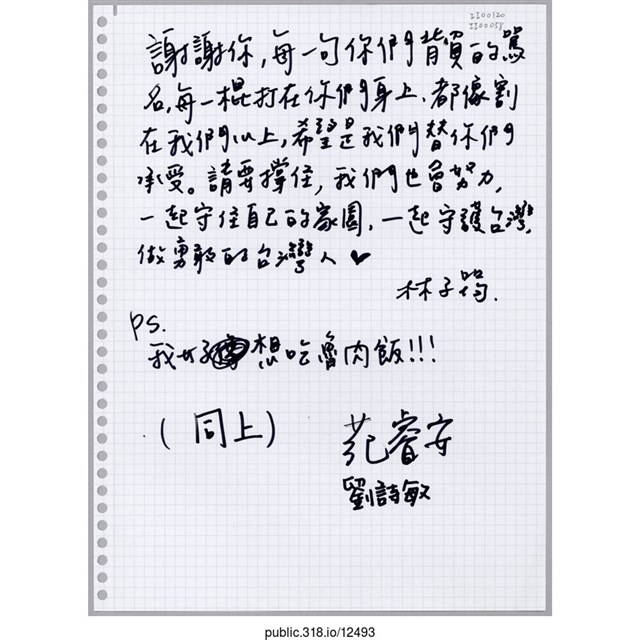 II00120
II00058
謝謝你,每一句你們背負的罵
名,每一棍打在你們身上、都像割
在我們心上,希望是我們替你們
承受。請要撐住,我們也會努力,
一起守住自己的家園,一起守護台灣,
做勇敢的台灣人♥
林子筠.
ps.
我好想吃魯肉飯!!!
(同上)
范睿安
劉詩敏
public.318.io/12493